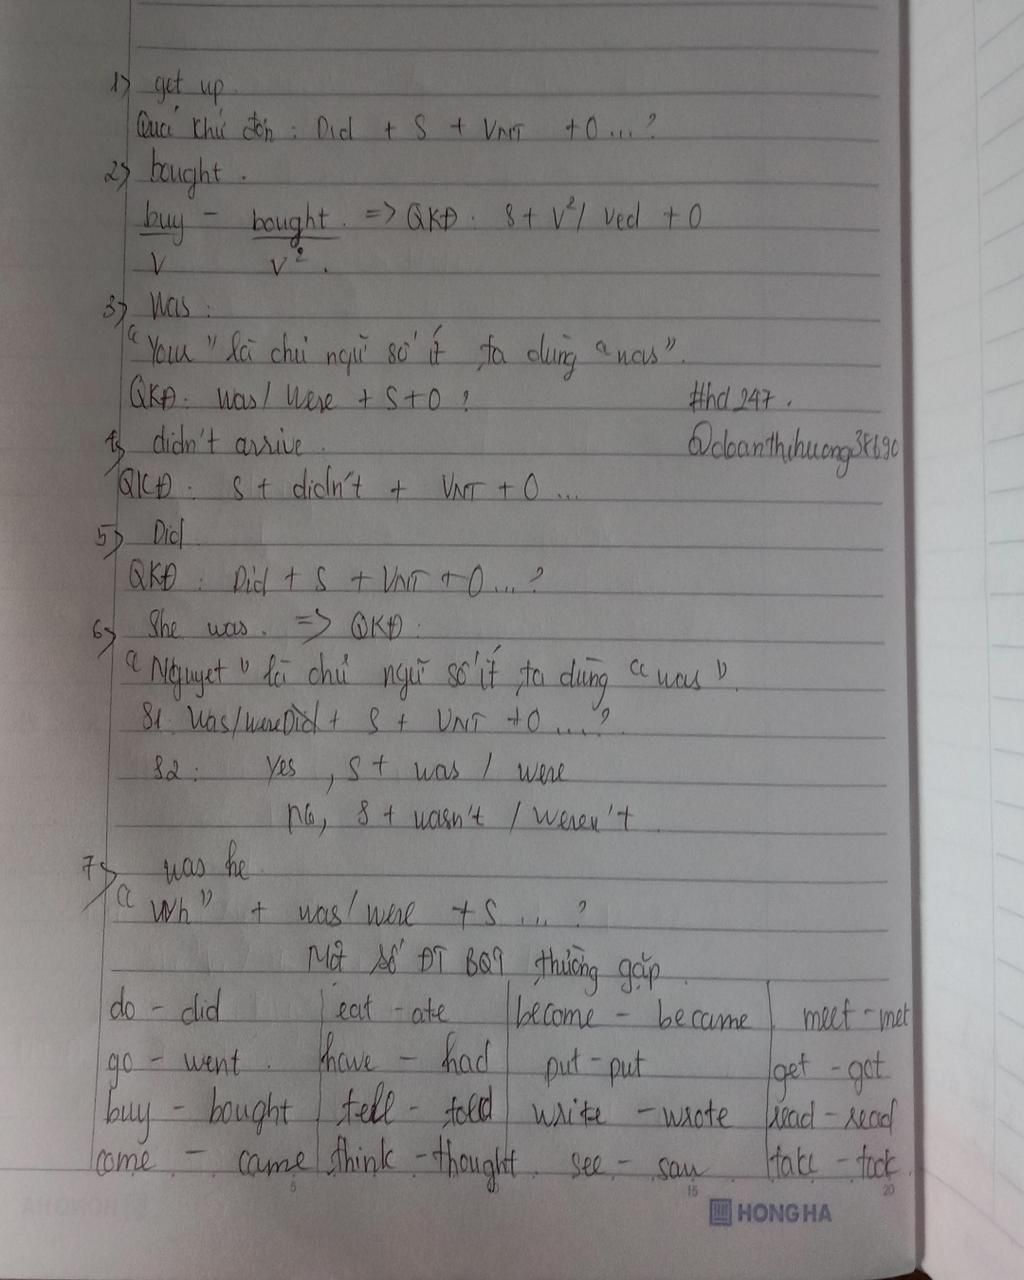 1) get up
Quá khứ đơn : Did + S + VNT + O ... ?
2) bought .
buy - bought . => QKĐ . S + V² / Ved + O
V V² .
3) Was :
"You" là chủ ngữ số ít , ta dùng "was".
QKĐ . Was / Were + S + O ? #hd 247 .
4) didn't arrive . @doanthihuong38690
QKĐ : S + didn't + VNT + O ...
5) Did
QKĐ : Did + S + VNT + O ... ?
6) She was . => QKĐ :
"Nguyet" là chủ ngữ số ít , ta dùng "was"
S1 . Was/were Did + S + VNT + O .... ?
S2 : Yes , S + was / were
No, S + wasn't / weren't
7) was he
"Wh" + was / were + S .... ?
Một số ĐT BQT thường gặp
do - did eat - ate become - became meet - met
go - went have - had put - put get - got
buy - bought tell - told write - wrote read - read
come - came think - thought see - saw take - took
5 15 20
HONG HA